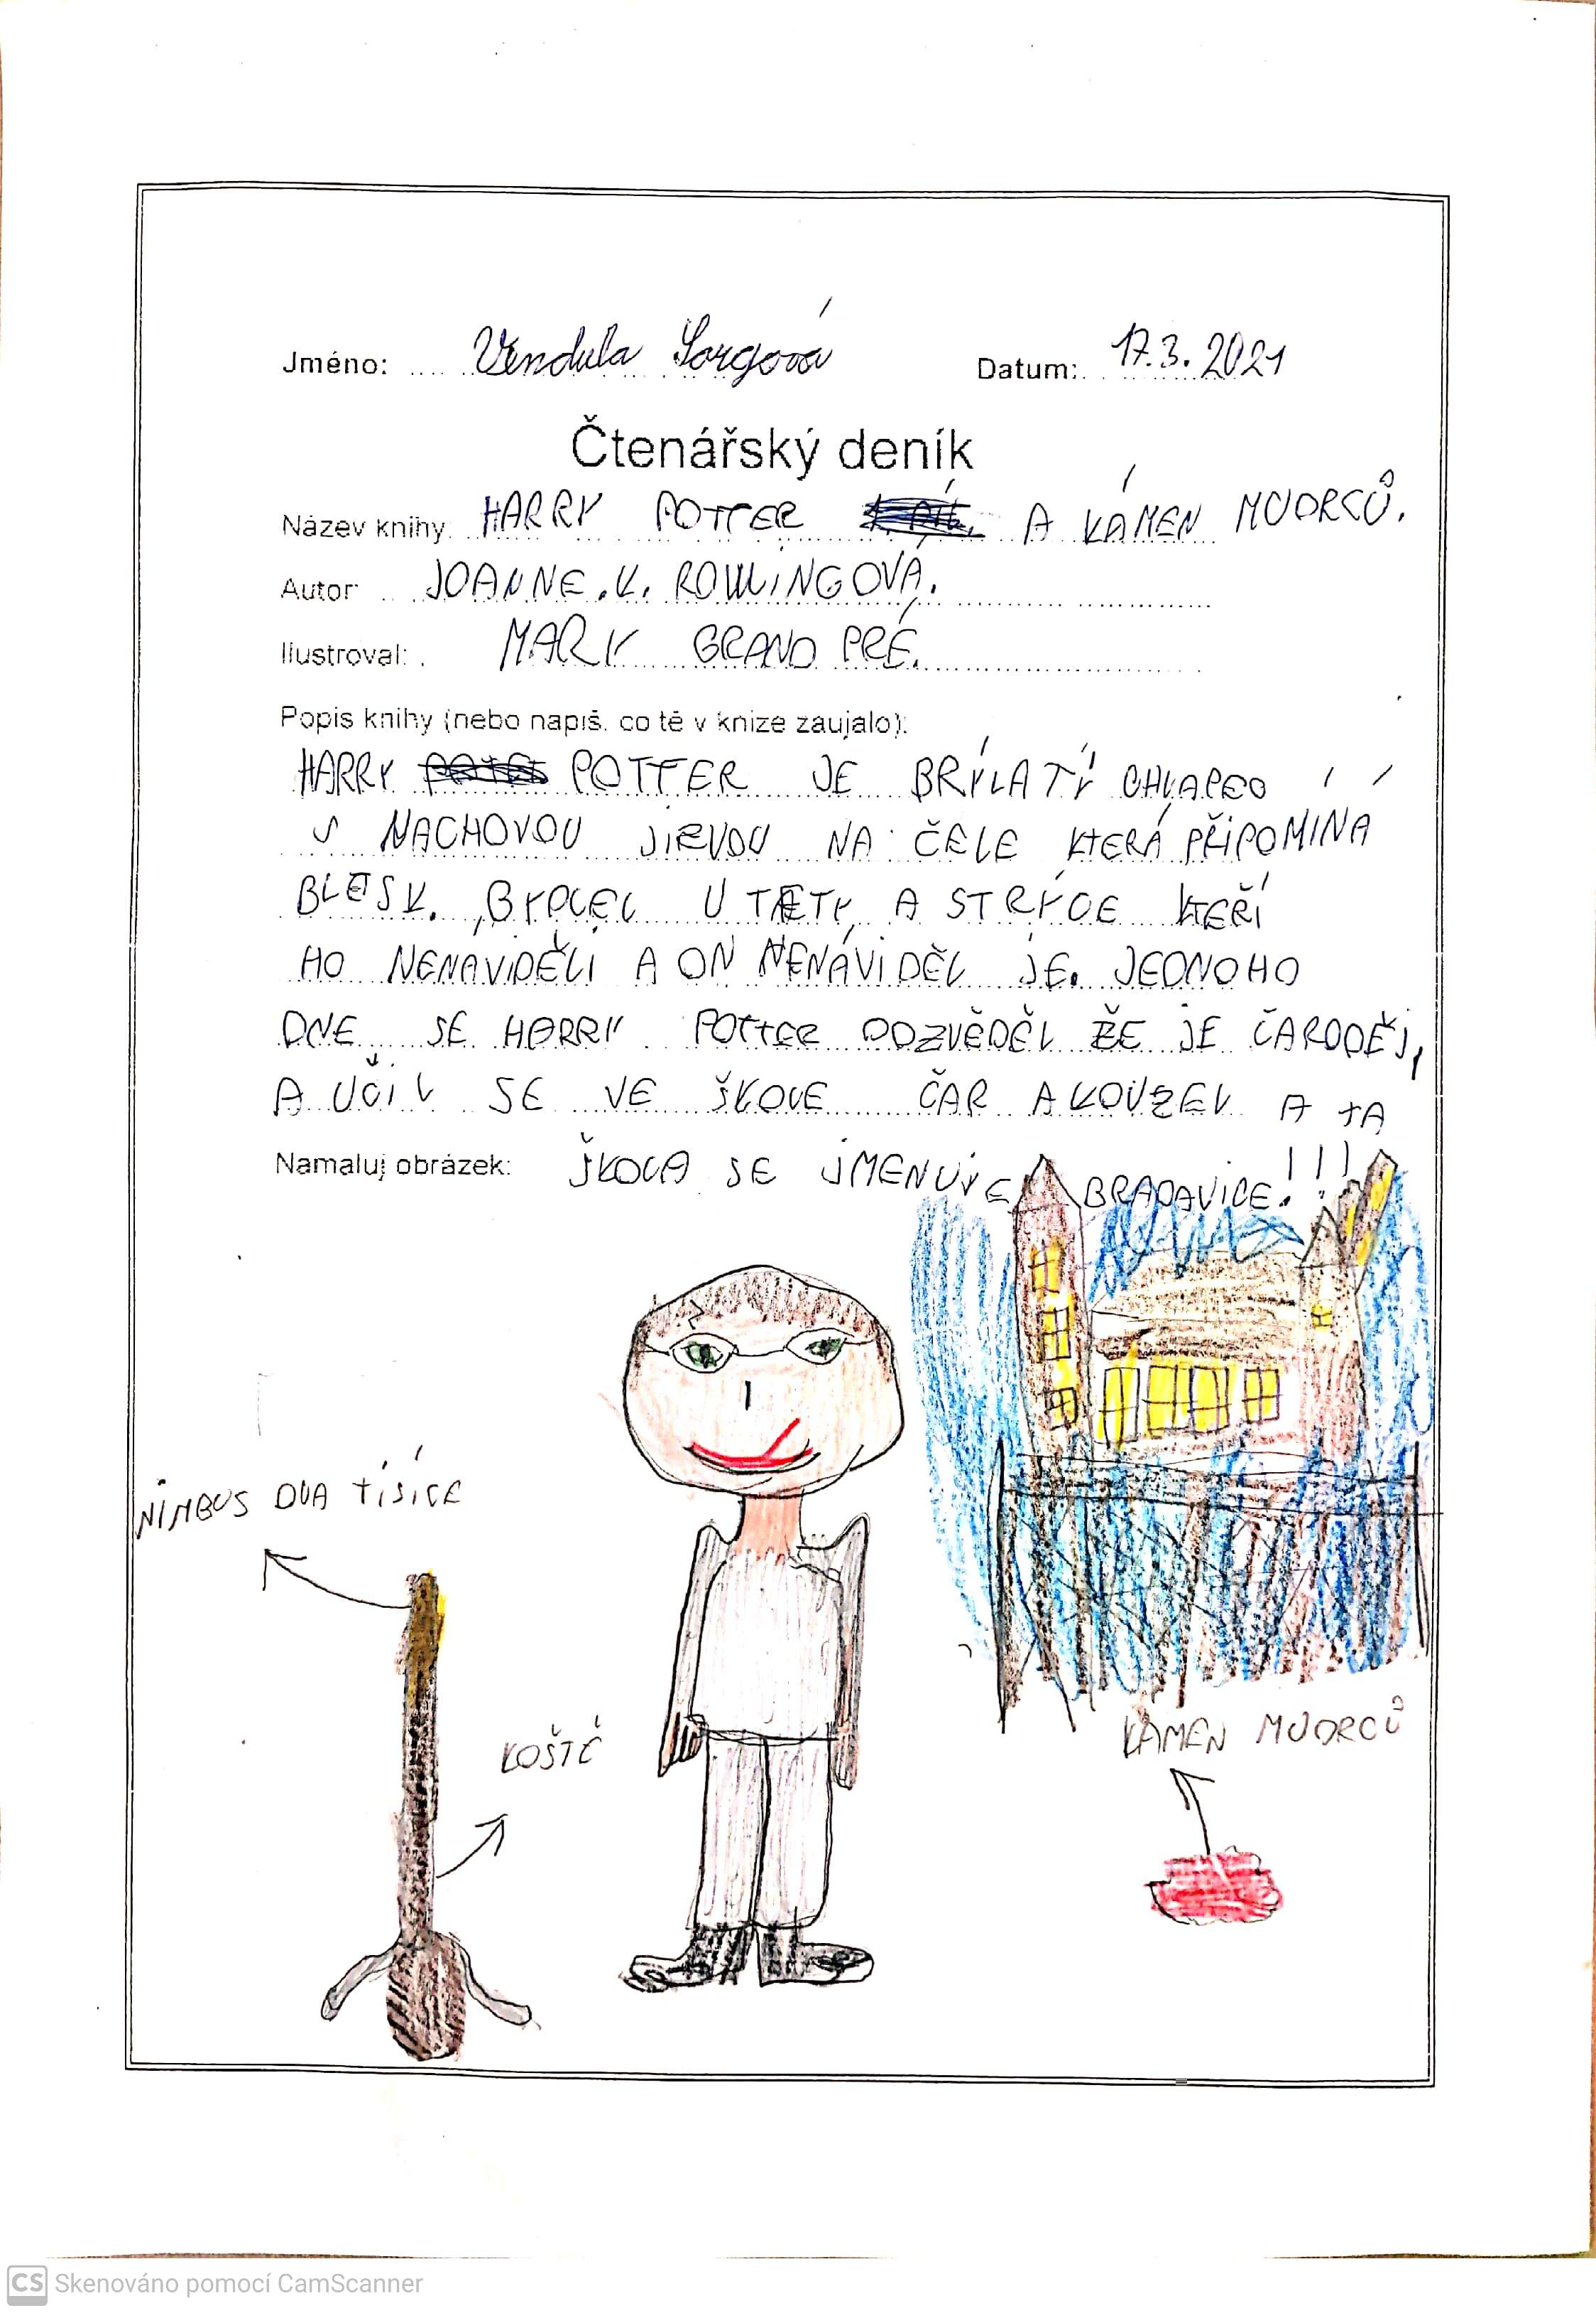 Jméno: Vendula Sorgová Datum: 17.3.2021
Čtenářský deník
Název knihy: HARRY POTTER A KÁMEN MUDRCŮ.
Autor: JOANNE.K. ROWLINGOVÁ.
Ilustroval: MARY GRAND PRÉ.
Popis knihy (nebo napiš. co tě v knize zaujalo):
HARRY POTTER JE BRÝLATÝ CHLAPEC
S NACHOVOU JIZVOU NA ČELE KTERÁ PŘIPOMÍNÁ
BLESK. BYDLEL U TETY A STRÝCE KTEŘÍ
HO NENAVIDĚLI A ON NENÁVIDĚL JE. JEDNOHO
DNE SE HARRY POTTER DOZVĚDĚL ŽE JE ČARODĚJ,
A UČIL SE VE ŠKOLE ČAR A KOUZEL A TA
Namaluj obrázek: ŠKOLA SE JMENUJE BRADAVICE!!!
NIMBUS DVA TISÍCE
KOŠTĚ
KÁMEN MUDRCŮ
CS Skenováno pomocí CamScanner